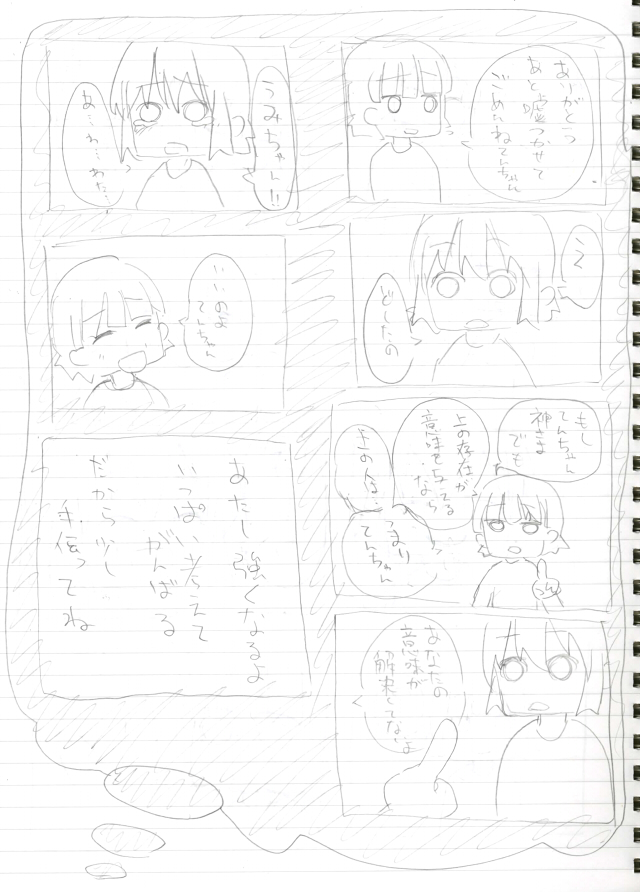 ありがとう
あと嘘つかせて
ごめんねてんちゃん
え
どしたの
もし
てんちゃん
神さま
でも
上の存在が
意味を与てる
なら
上の人は…
つまり
てんちゃん
あなたの
意味が
解決してないよ
うみちゃん!!
あ…わ…わた…
いいのよ
てんちゃん
あたし強くなるよ
いっぱい考えて
がんばる
だから少し
手伝ってね